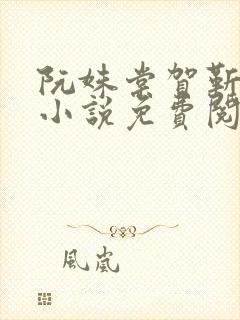 阮妹棠賀靳
小說免費閱
風嵐